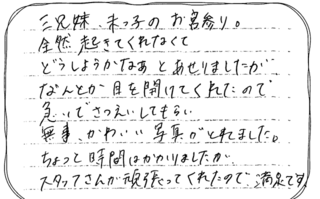 三兄妹、末っ子のお宮参り。
全然起きてくれなくて
どうしようかなあとあせりましたが
なんとか目を開けてくれたので
急いでさつえいしてもらい
無事、かわいい写真がとれました。
ちょって時間はかかりましたが、
スタッフさんが頑張ってくれたので、満足です